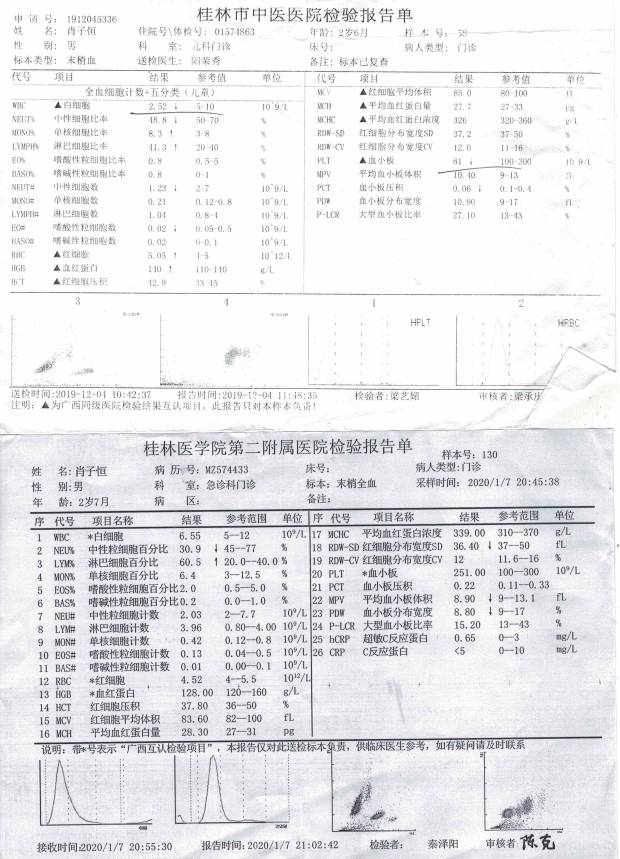 桂林市中医医院检验报告单
申 请 号: 1912045336
姓 名: 肖子恒 住院号\体检号: 01574863 年龄: 2岁6月 样 本 号: 58
性 别: 男 科 室: 儿科门诊 床号: 病人类型: 门诊
标本类型: 末梢血 送检医生: 阳荣秀 备注: 标本已复查
代号 项目 结果 参考值 单位 代号 项目 结果 参考值 单位
全血细胞计数+五分类(儿童) MCV ▲红细胞平均体积 85.0 80-100 fl
WBC ▲白细胞 2.52 ↓ 5-10 10^9/L MCH ▲平均血红蛋白量 27.7 27-33 pg
NEUT% 中性细胞比率 48.8 ↓ 50-70 % MCHC ▲平均血红蛋白浓度 326 320-360 g/L
MONO% 单核细胞比率 8.3 ↑ 3-8 % RDW-SD 红细胞分布宽度SD 37.2 37-50 fl
LYMPH% 淋巴细胞比率 41.3 ↑ 20-40 % RDW-CV 红细胞分布宽度CV 12.0 11-16 %
EO% 嗜酸性粒细胞比率 0.8 0.5-5 % PLT ▲血小板 61 ↓ 100-300 10^9/L
BASO% 嗜碱性粒细胞比率 0.8 0-1 % MPV 平均血小板体积 10.40 9-13 fl
NEUT# 中性细胞数 1.23 ↓ 2-7 10^9/L PCT 血小板压积 0.06 ↓ 0.1-0.4 %
MONO# 单核细胞数 0.21 0.12-0.8 10^9/L PDW 血小板分布宽度 10.90 9-17 fL
LYMPH# 淋巴细胞数 1.04 0.8-4 10^9/L P-LCR 大型血小板比率 27.10 13-43 %
EO# 嗜酸性粒细胞数 0.02 ↓ 0.05-0.5 10^9/L
BASO# 嗜碱性粒细胞数 0.02 0-0.1 10^9/L
RBC ▲红细胞 5.05 ↑ 4-5 10^12/L
HGB ▲血红蛋白 140 ↑ 110-140 g/L
HCT ▲红细胞压积 42.9 33-45 %
3 4 1 2
HPLT HRBC
送检时间:2019-12-04 10:42:37 报告时间:2019-12-04 11:48:35 检验者:梁艺媚 审核者:梁承庆
注明: ▲为广西同级医院检验结果互认项目。此报告只对本样本负责!
桂林医学院第二附属医院检验报告单
样本号: 130
姓 名: 肖子恒 病 历 号: MZ574433 床号: 病人类型:门诊
性 别:男 科 室: 急诊科门诊 标本: 末梢全血 采样时间: 2020/1/7 20:45:38
年 龄: 2岁7月 病 区: 备注:
序 代号 项目名称 结果 参考范围 单位 序 代号 项目名称 结果 参考范围 单位
1 WBC *白细胞 6.55 5--12 10⁹/L 17 MCHC 平均血红蛋白浓度 339.00 310--370 g/L
2 NEU% 中性粒细胞百分比 30.9 ↓ 45--77 % 18 RDW-SD 红细胞分布宽度SD 36.40 ↓ 37--50 fL
3 LYM% 淋巴细胞百分比 60.5 ↑ 20.0--40.0 % 19 RDW-CV 红细胞分布宽度CV 12 11.6--16 %
4 MON% 单核细胞百分比 6.4 3--12.5 % 20 PLT *血小板 251.00 100--300 10⁹/L
5 EOS% 嗜酸性粒细胞百分比 2.0 0.5--5.0 % 21 PCT 血小板压积 0.22 0.11--0.33
6 BAS% 嗜碱性粒细胞百分比 0.2 0.0--1.0 % 22 MPV 平均血小板体积 8.90 ↓ 9--13.1 fL
7 NEU# 中性粒细胞计数 2.03 2--7.7 10⁹/L 23 PDW 血小板分布宽度 8.80 ↓ 9--17 %
8 LYM# 淋巴细胞计数 3.96 0.80--4.00 10⁹/L 24 P-LCR 大型血小板比率 15.20 13--43 %
9 MON# 单核细胞计数 0.42 0.12--0.8 10⁹/L 25 hCRP 超敏C反应蛋白 0.65 0--3 mg/L
10 EOS# 嗜酸性粒细胞计数 0.13 0.04--0.5 10⁹/L 26 CRP C反应蛋白 <5 0--10 mg/L
11 BAS# 嗜碱性粒细胞计数 0.01 0.00--0.1 10⁹/L
12 RBC *红细胞 4.52 4--5.5 10¹²/L
13 HGB *血红蛋白 128.00 120--160 g/L
14 HCT 红细胞压积 37.80 36--50 %
15 MCV 红细胞平均体积 83.60 82--100 fL
16 MCH 平均血红蛋白量 28.30 27--31 pg
说明: 带*号表示“广西互认检验项目”, 本报告仅对此送检标本负责, 供临床医生参考, 如有疑问请及时联系
接收时间:2020/1/7 20:55:30 报告时间:2020/1/7 21:02:42 检验者: 秦泽阳 审核者 陈克